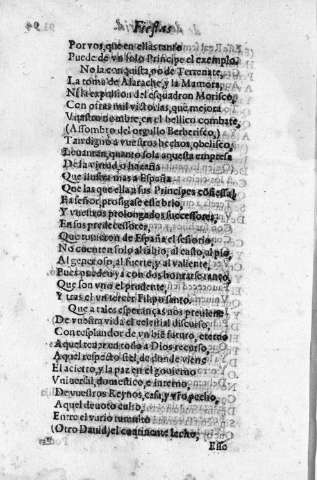 Fiestas
Por vos, que en ellas tanto
Puede de vn solo Principe el exemplo.
No la conquista, no de Terrenate,
La toma de Alarache, y la Mamora,
Ni la expulsion del esquadron Morisco,
Con otras mil victorias, que mejora
Vuestro nombre, en el bellico combate,
(Assombro del orgullo Berberisco,)
Tan digno a vuestros hechos, obelisco,
Leuantan, quanto sola aquesta empresa
De la virtud, o hazaña
Que ilustra mas a España
Que las que ella a sus Principes confiessa,
Ea señor, prosigase este brio,
Y vuestros prolongados successores,
En sus predecessores,
Que tuuieron de España el señorio,
No cuenten solo al sabio, al casto, al pio,
Al generoso, al fuerte, y al valiente,
Pues pueden ya con dos honrarse tanto,
Que son vno el prudente,
Y tras el vn tercer Filipo santo.
Que a tales esperanças nos preuiene
De vuestra vida el celestial discurso,
Con resplandor de vn biē futuro, eterno
Aquel tener en todo a Dios recurso,
Aquel respecto fiel, de donde viene
El acierto, y la paz en el gouierno
Vniuersal, domestico, e interno,
De vuestros Reynos, casa, y vro pecho,
Aquel deuoto culto,
Entre el vario tumulto
(Otro Dauid) el continente lecho,
Esso